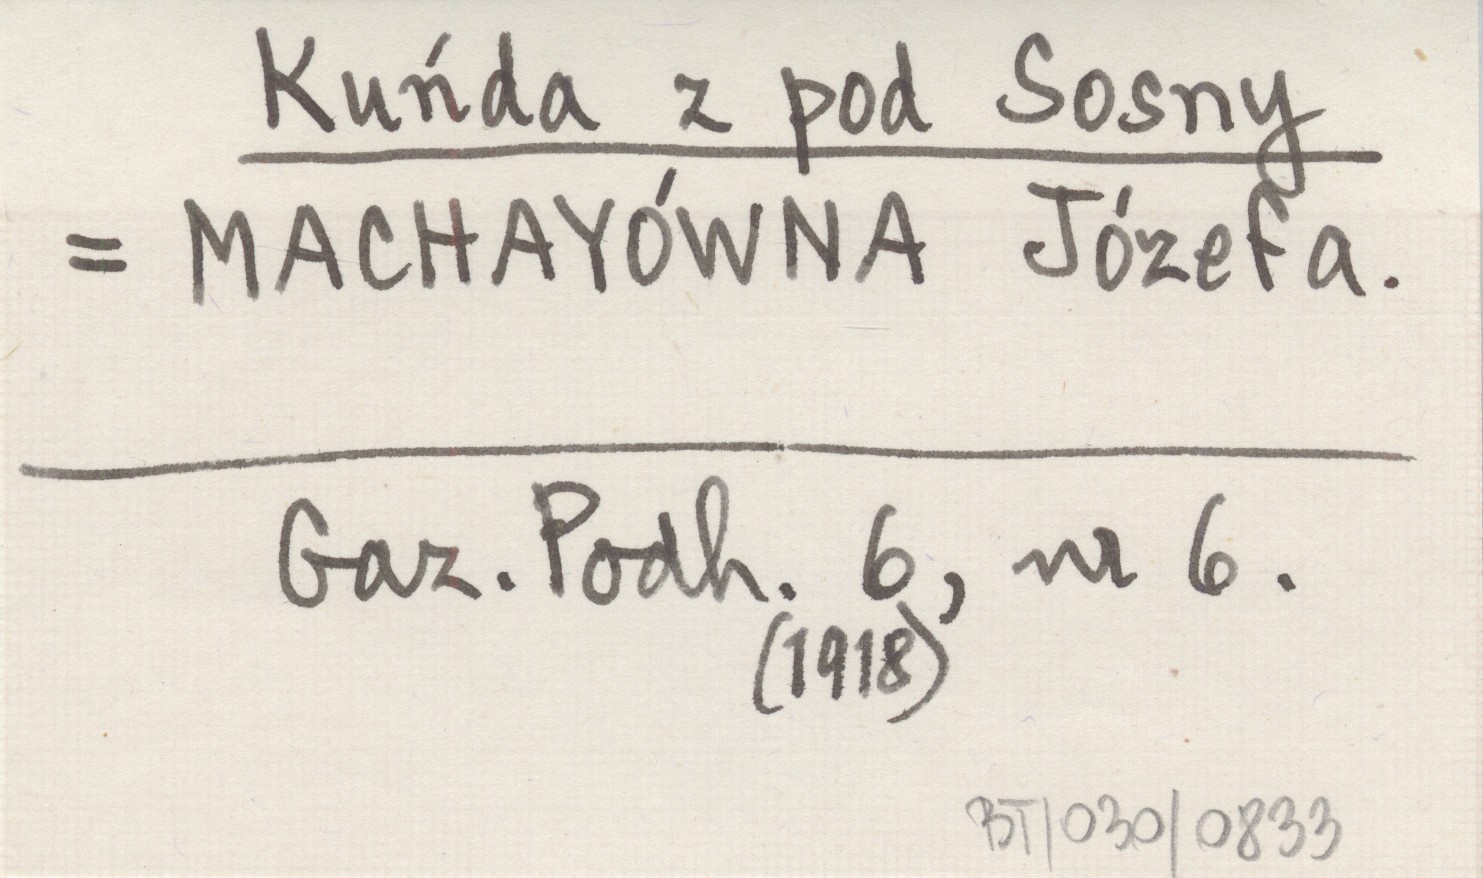 Kuńda z pod Sosny
= MACHAYÓWNA Józefa.
Gaz. Podh. 6, nr 6.
(1918)
BT/030/0833